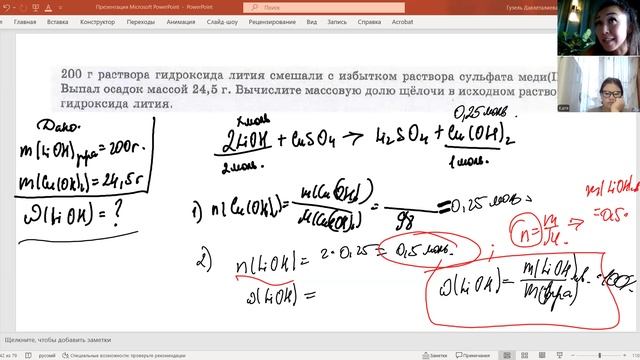 Презентация Microsoft PowerPoint - PowerPoint
Поиск
Главная Вставка Конструктор Переходы Анимация Слайд-шоу Рецензирование Вид Справка Acrobat
200 г раствора гидроксида лития смешали с избытком раствора сульфата меди(I
Выпал осадок массой 24,5 г. Вычислите массовую долю щёлочи в исходном раство
гидроксида лития.
Дано:
m(LiOH)р-ра = 200г.
m(Cu(OH)₂) = 24,5г
ω(LiOH) = ?
0,25 моль
2LiOH + CuSO₄ → Li₂SO₄ + Cu(OH)₂
2 моль 1 моль.
1) n(Cu(OH)₂) = m(Cu(OH)₂) / M(Cu(OH)₂) = / 98 = 0,25 моль
n = m/M ⇒
= 0,5
2) n(LiOH) = 2 · 0,25 = 0,5 моль.
ω(LiOH) =
ω(LiOH) = m(LiOH) / m(р-ра)
Щелкните, чтобы добавить заметки
русский Специальные возможности: проверьте рекомендации
Заметки
Катя